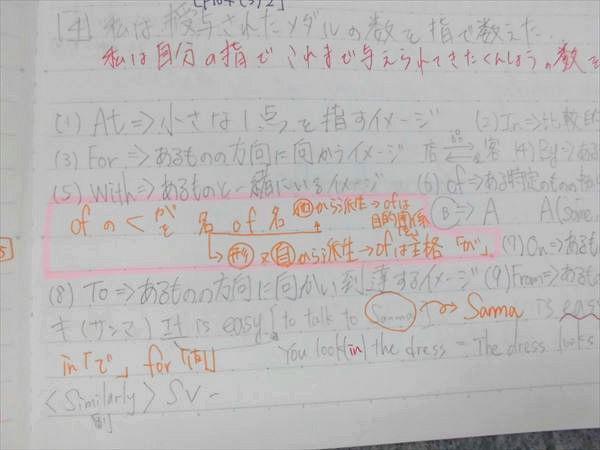 [4] 私は授与されたメダルの数を指で数えた.
私は自分の指でこれまで与えられてきたくんしょうの数を
(1) At ⇒ 小さな1点を指すイメージ (2) In ⇒ 比較的
(3) For ⇒ あるものの方向に向かうイメージ 店 客 (4) By ⇒ ある
(5) With ⇒ あるものと一緒にいるイメージ (6) of ⇒ ある特定のもの
of の < が を 名 of 名 他 から派生 → of は目的関係 B ⇒ A A(some,
形 又 自 から派生 → of は主格「が」 (7) On ⇒ あるも
(8) To ⇒ あるものの方向に向かい到達するイメージ (9) From ⇒ あるも
キ(サンマ) It is easy [to talk to Sanma] Sanma is easy
in「で」 for「向」 You look (in) the dress = The dress looks
<Similarly> SV ~
副